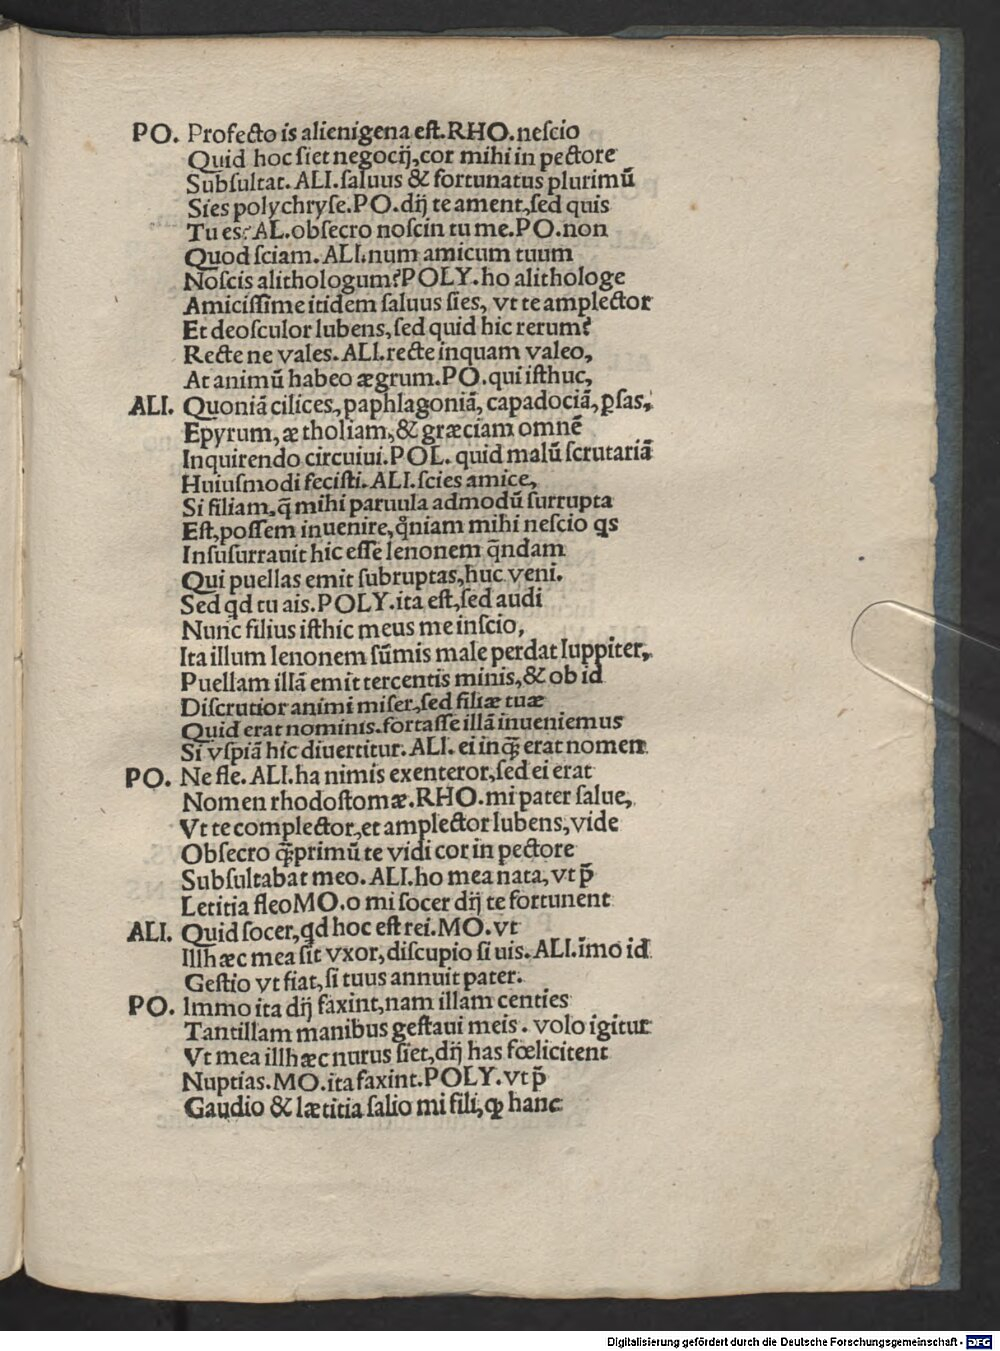 PO. Profecto is alienigena est. RHO. nescio
Quid hoc siet negocij, cor mihi in pectore
Subsultat. ALI. saluus & fortunatus plurimũ
Sies polychryse. PO. dij te ament, sed quis
Tu es? AL. obsecro noscin tu me. PO. non
Quod sciam. ALI. num amicum tuum
Noscis alithologum? POLY. ho alithologe
Amicissime itidem saluus sies, vt te amplector
Et deosculor lubens, sed quid hic rerum?
Recte ne vales. ALI. recte inquam valeo,
At animũ habeo ægrum. PO. qui isthuc,
ALI. Quoniã cilices, paphlagoniã, capadociã, ꝑsas,
Epyrum, ætholiam, & græciam omnẽ
Inquirendo circuiui. POL. quid malũ scrutariã
Huiusmodi fecisti. ALI. scies amice,
Si filiam, q̃ mihi paruula admodũ surrupta
Est, possem inuenire, qñniam mihi nescio qs
Insusurrauit hic esse lenonem q̃ndam
Qui puellas emit subruptas, huc veni.
Sed qd tu ais. POLY. ita est, sed audi
Nunc filius isthic meus me inscio,
Ita illum lenonem sũmis male perdat Iuppiter,
Puellam illã emit tercentis minis, & ob id
Discrutior animi miser, sed filiæ tuæ
Quid erat nominis. fortasse illã inueniemus
Si vspiã hic diuertitur. ALI. ei inq̃ erat nomen
PO. Ne fle. ALI. ha nimis exenteror, sed ei erat
Nomen rhodostomæ. RHO. mi pater salue,
Vt te complector, et amplector lubens, vide
Obsecro q̃primũ te vidi cor in pectore
Subsultabat meo. ALI. ho mea nata, vt p̃
Letitia fleo MO. o mi socer dij te fortunent
ALI. Quid socer, qd hoc est rei. MO. vt
Illhæc mea sit vxor, discupio si uis. ALI. ĩmo id
Gestio vt fiat, si tuus annuit pater.
PO. Immo ita dij faxint, nam illam centies
Tantillam manibus gestaui meis. volo igitur
Vt mea illhæc nurus siet, dij has fœlicitent
Nuptias. MO. ita faxint. POLY. vt p̃
Gaudio & lætitia salio mi fili, ꝙ hanc
Digitalisierung gefördert durch die Deutsche Forschungsgemeinschaft - DFG